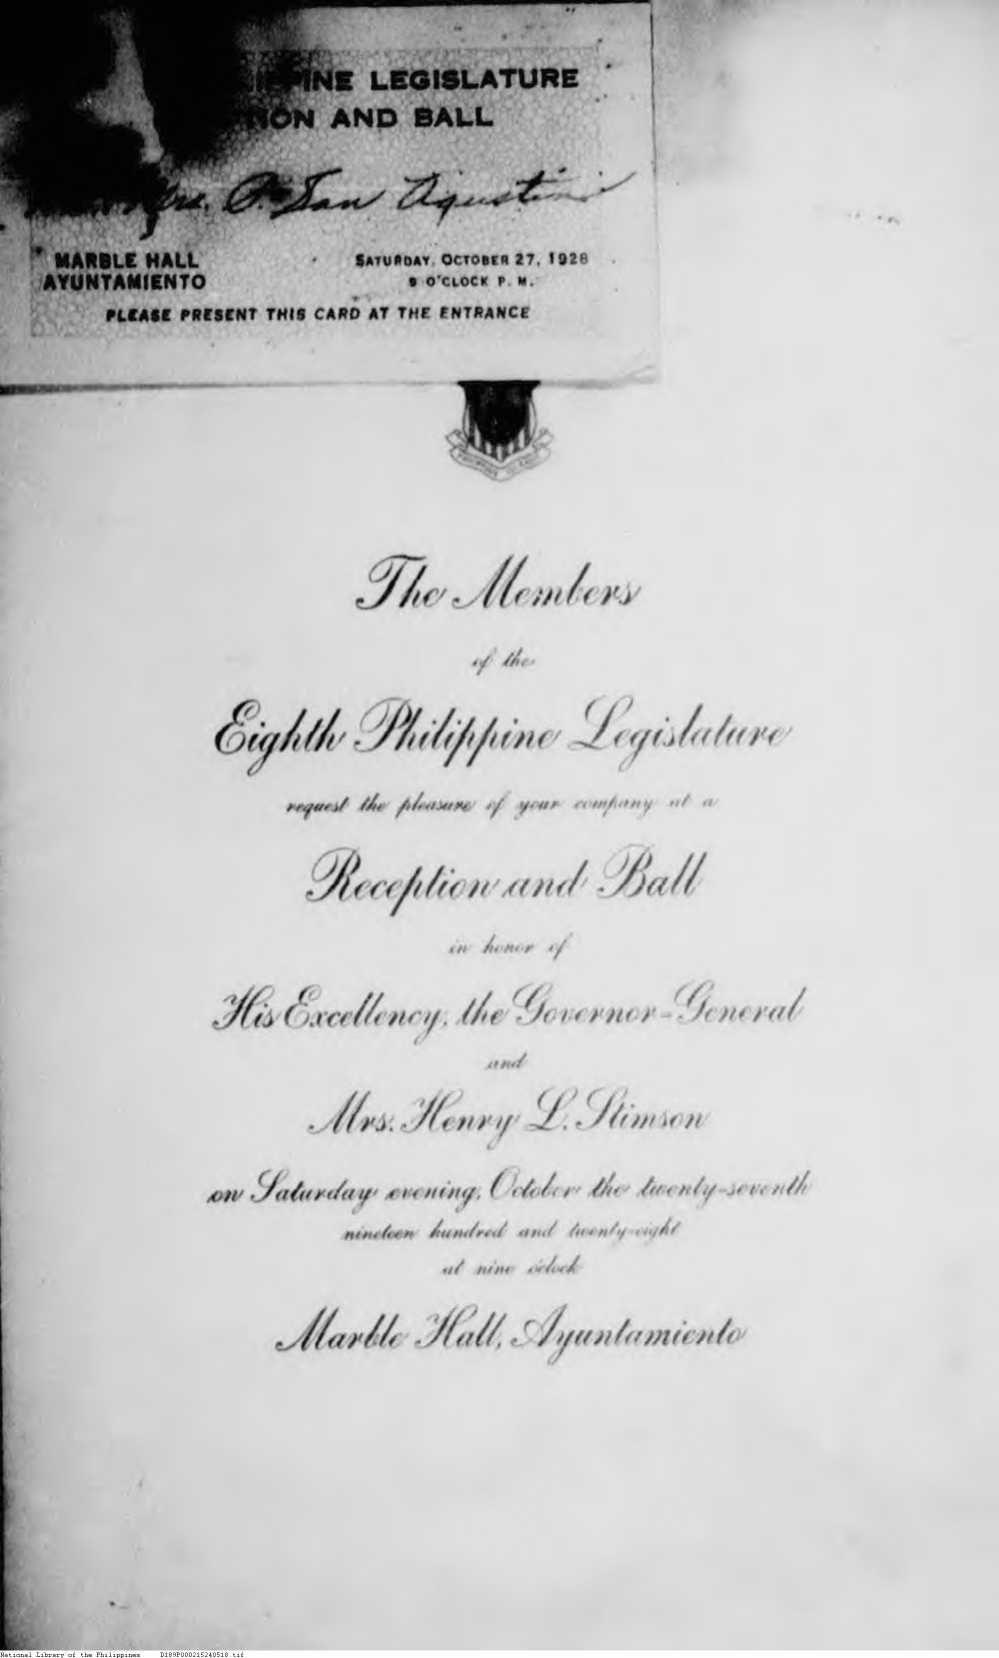 PINE LEGISLATURE
ION AND BALL
Mrs. P. San Agustin
MARBLE HALL
AYUNTAMIENTO
SATURDAY, OCTOBER 27, 1928
9 O'CLOCK P. M.
PLEASE PRESENT THIS CARD AT THE ENTRANCE
The Members
of the
Eighth Philippine Legislature
request the pleasure of your company at a
Reception and Ball
in honor of
His Excellency, the Governor-General
and
Mrs. Henry L. Stimson
on Saturday evening, October the twenty-seventh
nineteen hundred and twenty-eight
at nine o'clock
Marble Hall, Ayuntamiento
National Library of the Philippines D189P000215240518.tif